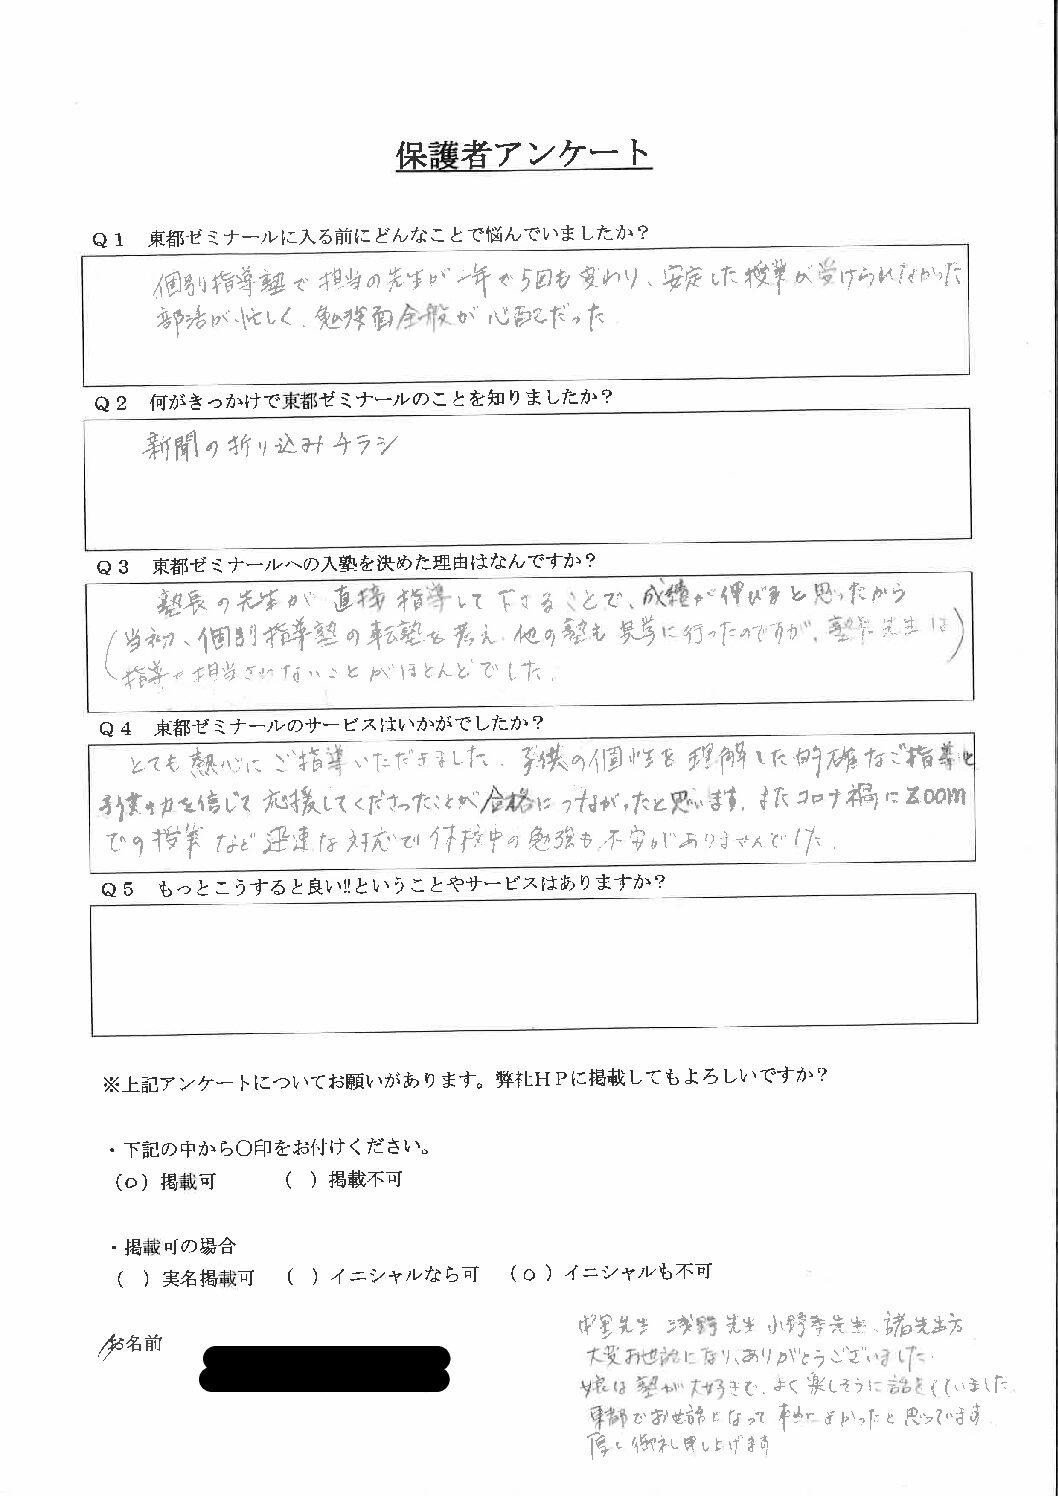 保護者アンケート
Q1 東都ゼミナールに入る前にどんなことで悩んでいましたか？
個別指導塾で担当の先生が一年で5回も変わり、安定した授業が受けられなかった
部活が忙しく、勉強面全般が心配だった
Q2 何がきっかけで東都ゼミナールのことを知りましたか？
新聞の折り込みチラシ
Q3 東都ゼミナールへの入塾を決めた理由はなんですか？
塾長の先生が直接指導して下さることで、成績が伸びると思ったから
(当初、個別指導塾の転塾を考え、他の塾も見学に行ったのですが、塾長先生は)
指導を担当されないことがほとんどでした。
Q4 東都ゼミナールのサービスはいかがでしたか？
とても熱心にご指導いただきました。子供の個性を理解した的確なご指導と
子供の力を信じて応援してくださったことが合格につながったと思います。またコロナ禍にZoom
での授業など迅速な対応で休校中の勉強も不安がありませんでした。
Q5 もっとこうすると良い!!ということやサービスはありますか？
※上記アンケートについてお願いがあります。弊社HPに掲載してもよろしいですか？
・下記の中から〇印をお付けください。
（o）掲載可 （ ）掲載不可
・掲載可の場合
（ ）実名掲載可 （ ）イニシャルなら可 （o）イニシャルも不可
お名前
中里先生 浅野先生 小野寺先生、諸先生方
大変お世話になり、ありがとうございました。
娘は塾が大好きで、よく楽しそうに話をしていました。
東都でお世話になって本当によかったと思っています。
厚く御礼申し上げます